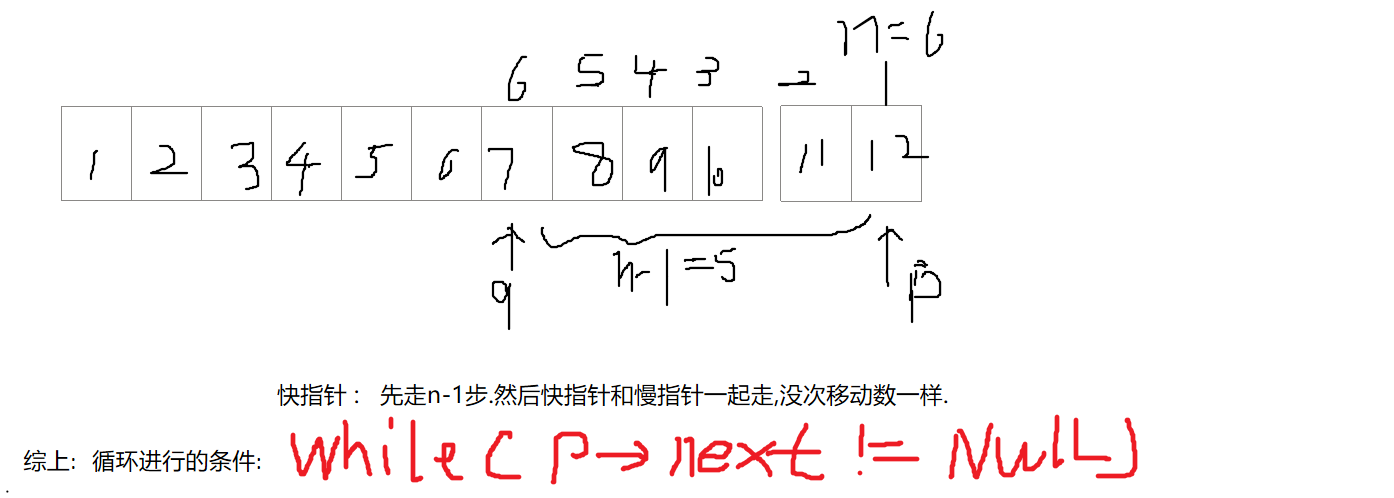 n=6
6 5 4 3 2
1 2 3 4 5 6 7 8 9 10 11 12
n-1=5
q p
快指针： 先走n-1步.然后快指针和慢指针一起走,没次移动数一样.
综上: 循环进行的条件: while(p→next != NULL)